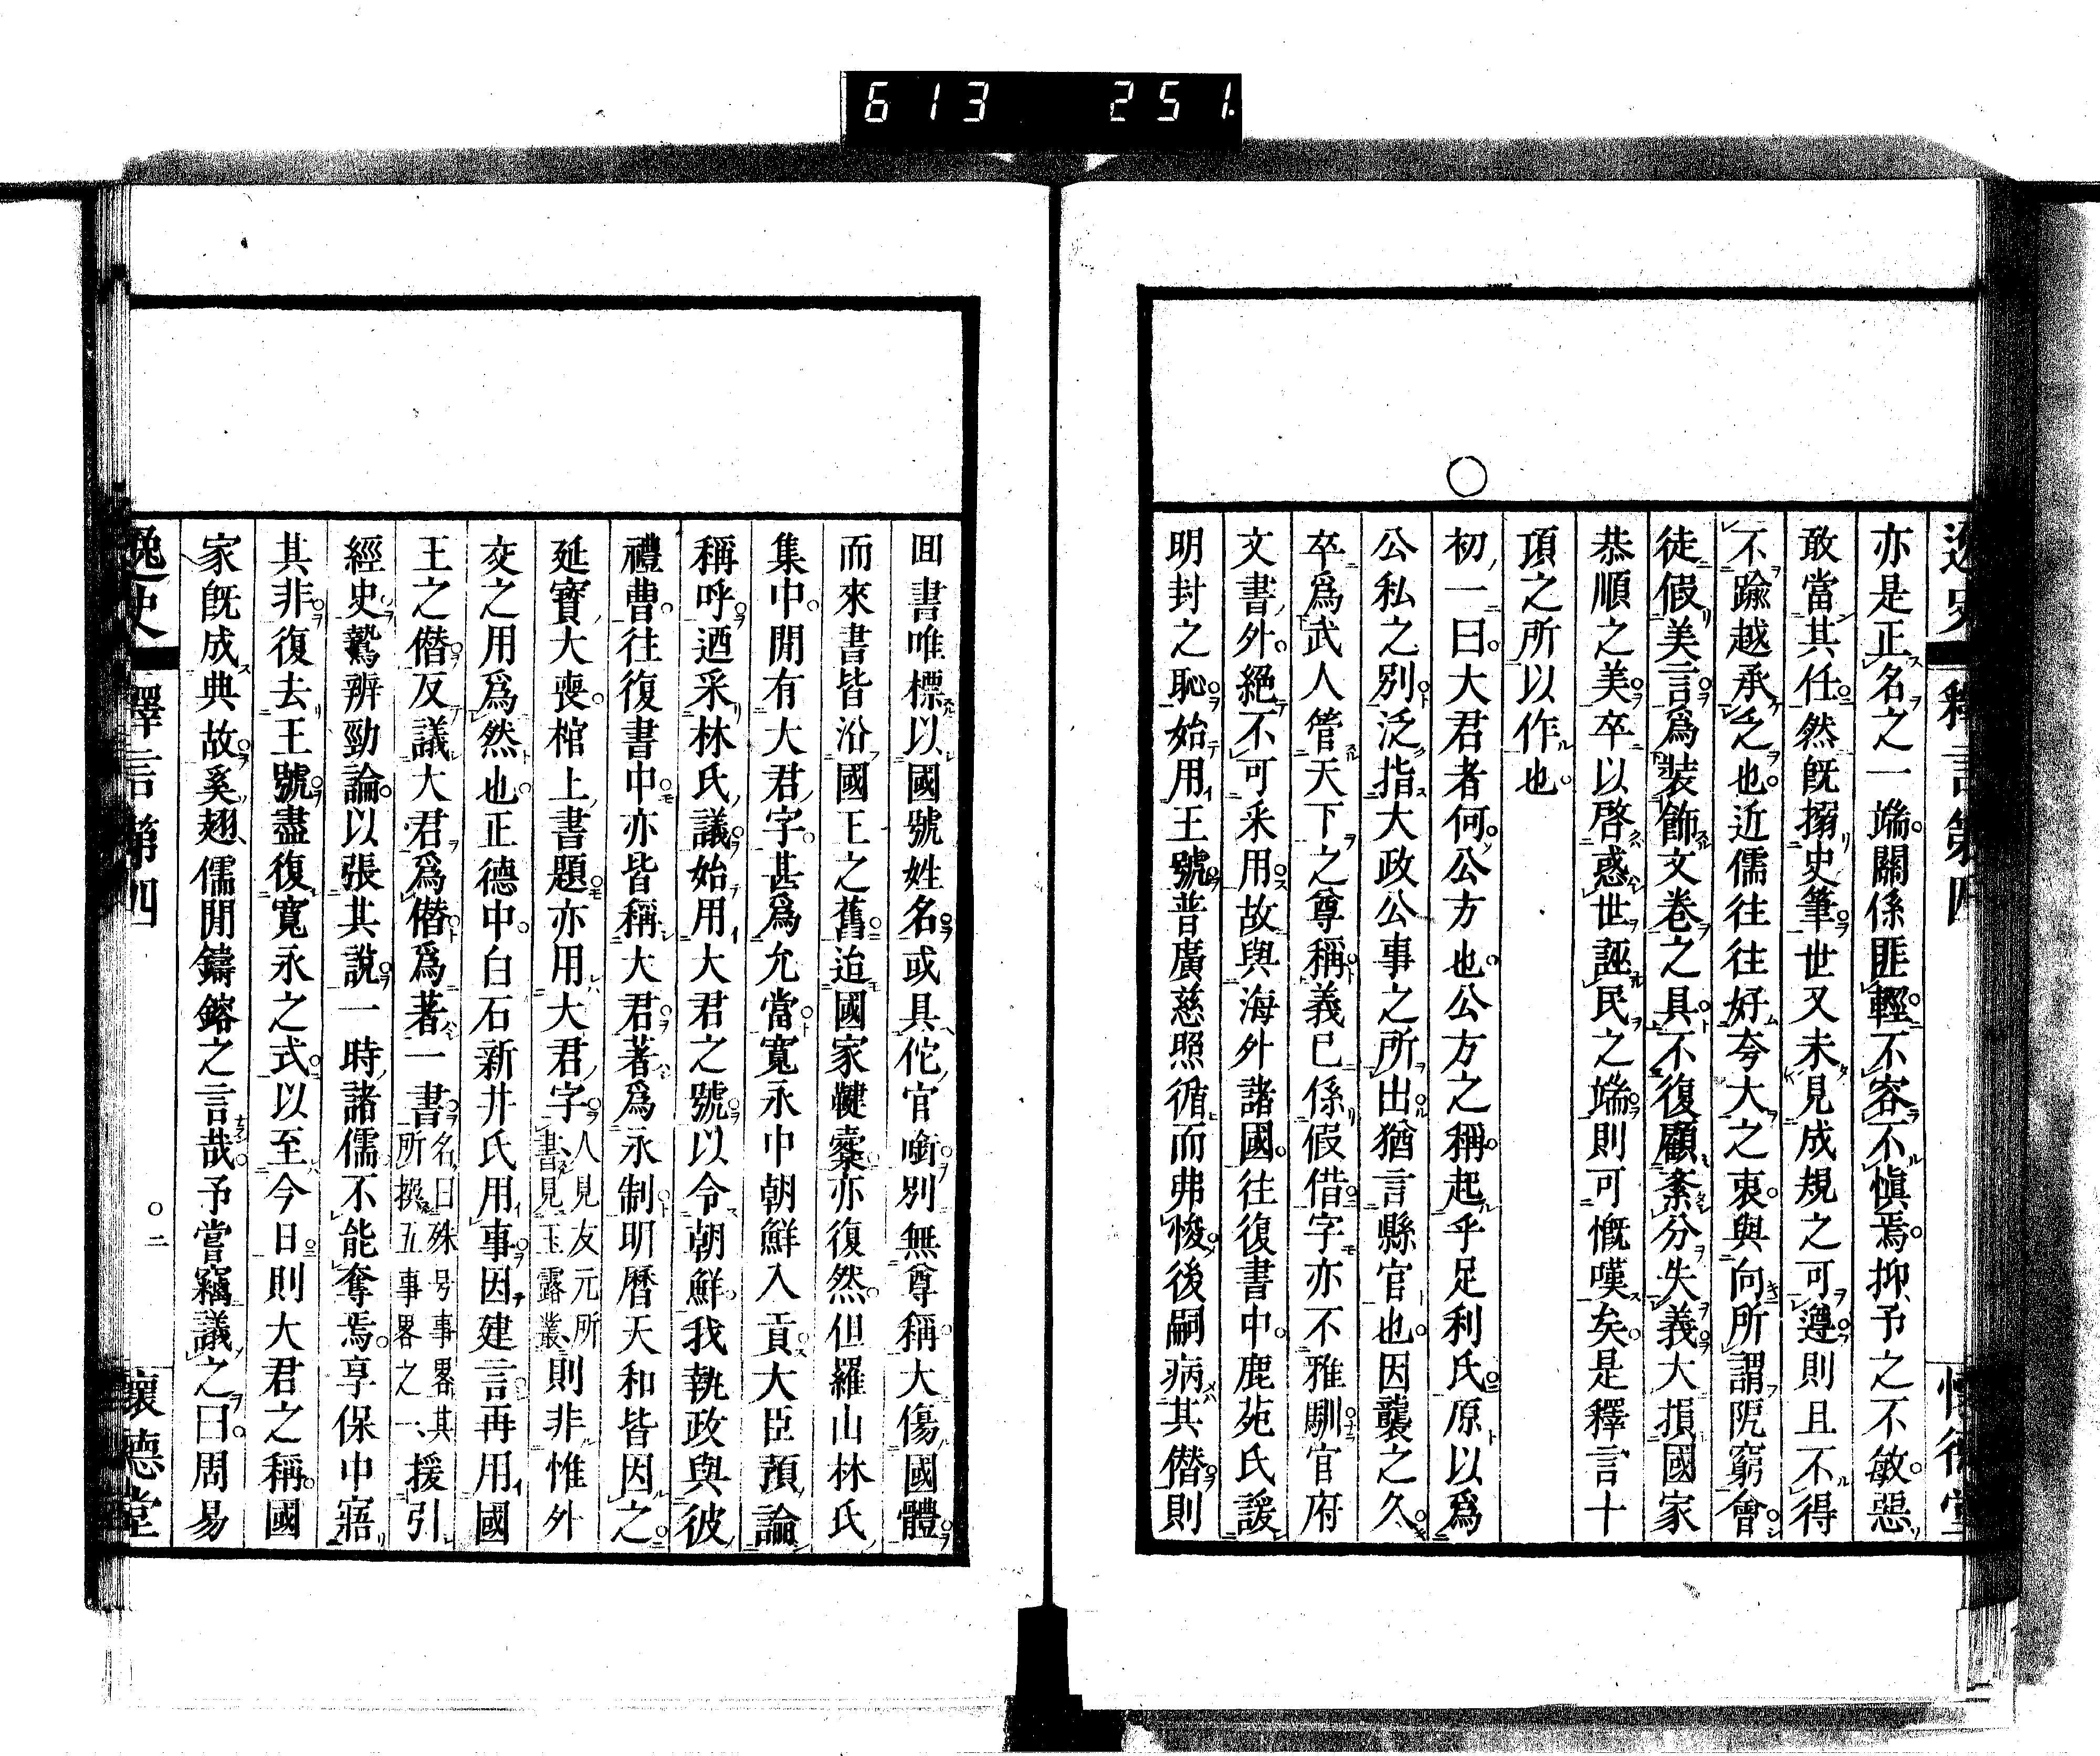 613 251
逸史 釋言第四 懷德堂
亦是正名之一端關係匪輕不容不愼焉抑予之不敏惡
敢當其任然旣搦史筆世又未見成規之可遵則且不得
不踰越承乏也近儒往往好夸大之衷與向所謂阮窮會
徒假美言爲裝飾文卷之具不復顧紊分失義大損國家
恭順之美卒以啓惑世誣民之端則可慨嘆矣是釋言十
頂之所以作也
○
初一曰大君者何公方也公方之稱起乎足利氏原以爲
公私之別泛指大政公事之所出猶言縣官也因襲之久
卒爲武人管天下之尊稱義已係假借字亦不雅馴官府
文書外絕不可采用故與海外諸國往復書中鹿苑氏諼
明封之恥始用王號普廣慈照循而弗悛後嗣病其僭則
囬書唯標以國號姓名或具佗官銜別無尊稱大傷國體
而來書皆沿國王之舊迨國家韃櫜亦復然但羅山林氏
集中間有大君字甚爲允當寬永中朝鮮入貢大臣預論
稱呼迺采林氏議始用大君之號以令朝鮮我執政與彼
禮曹往復書中亦皆稱大君著爲永制明曆天和皆因之
延寶大喪棺上書題亦用大君字人見友元所書見玉露叢則非惟外
交之用爲然也正德中白石新井氏用事因建言再用國
王之僭反議大君爲僭爲著一書名曰殊号事畧其所撰五事畧之一援引
經史驚辨勁論以張其說一時諸儒不能奪焉享保中寤
其非復去王號盡復寬永之式以至今日則大君之稱國
家旣成典故奚翅儒閒鑄鎔之言哉予嘗竊議之曰周易
逸史 釋言第四 〇二 懷德堂